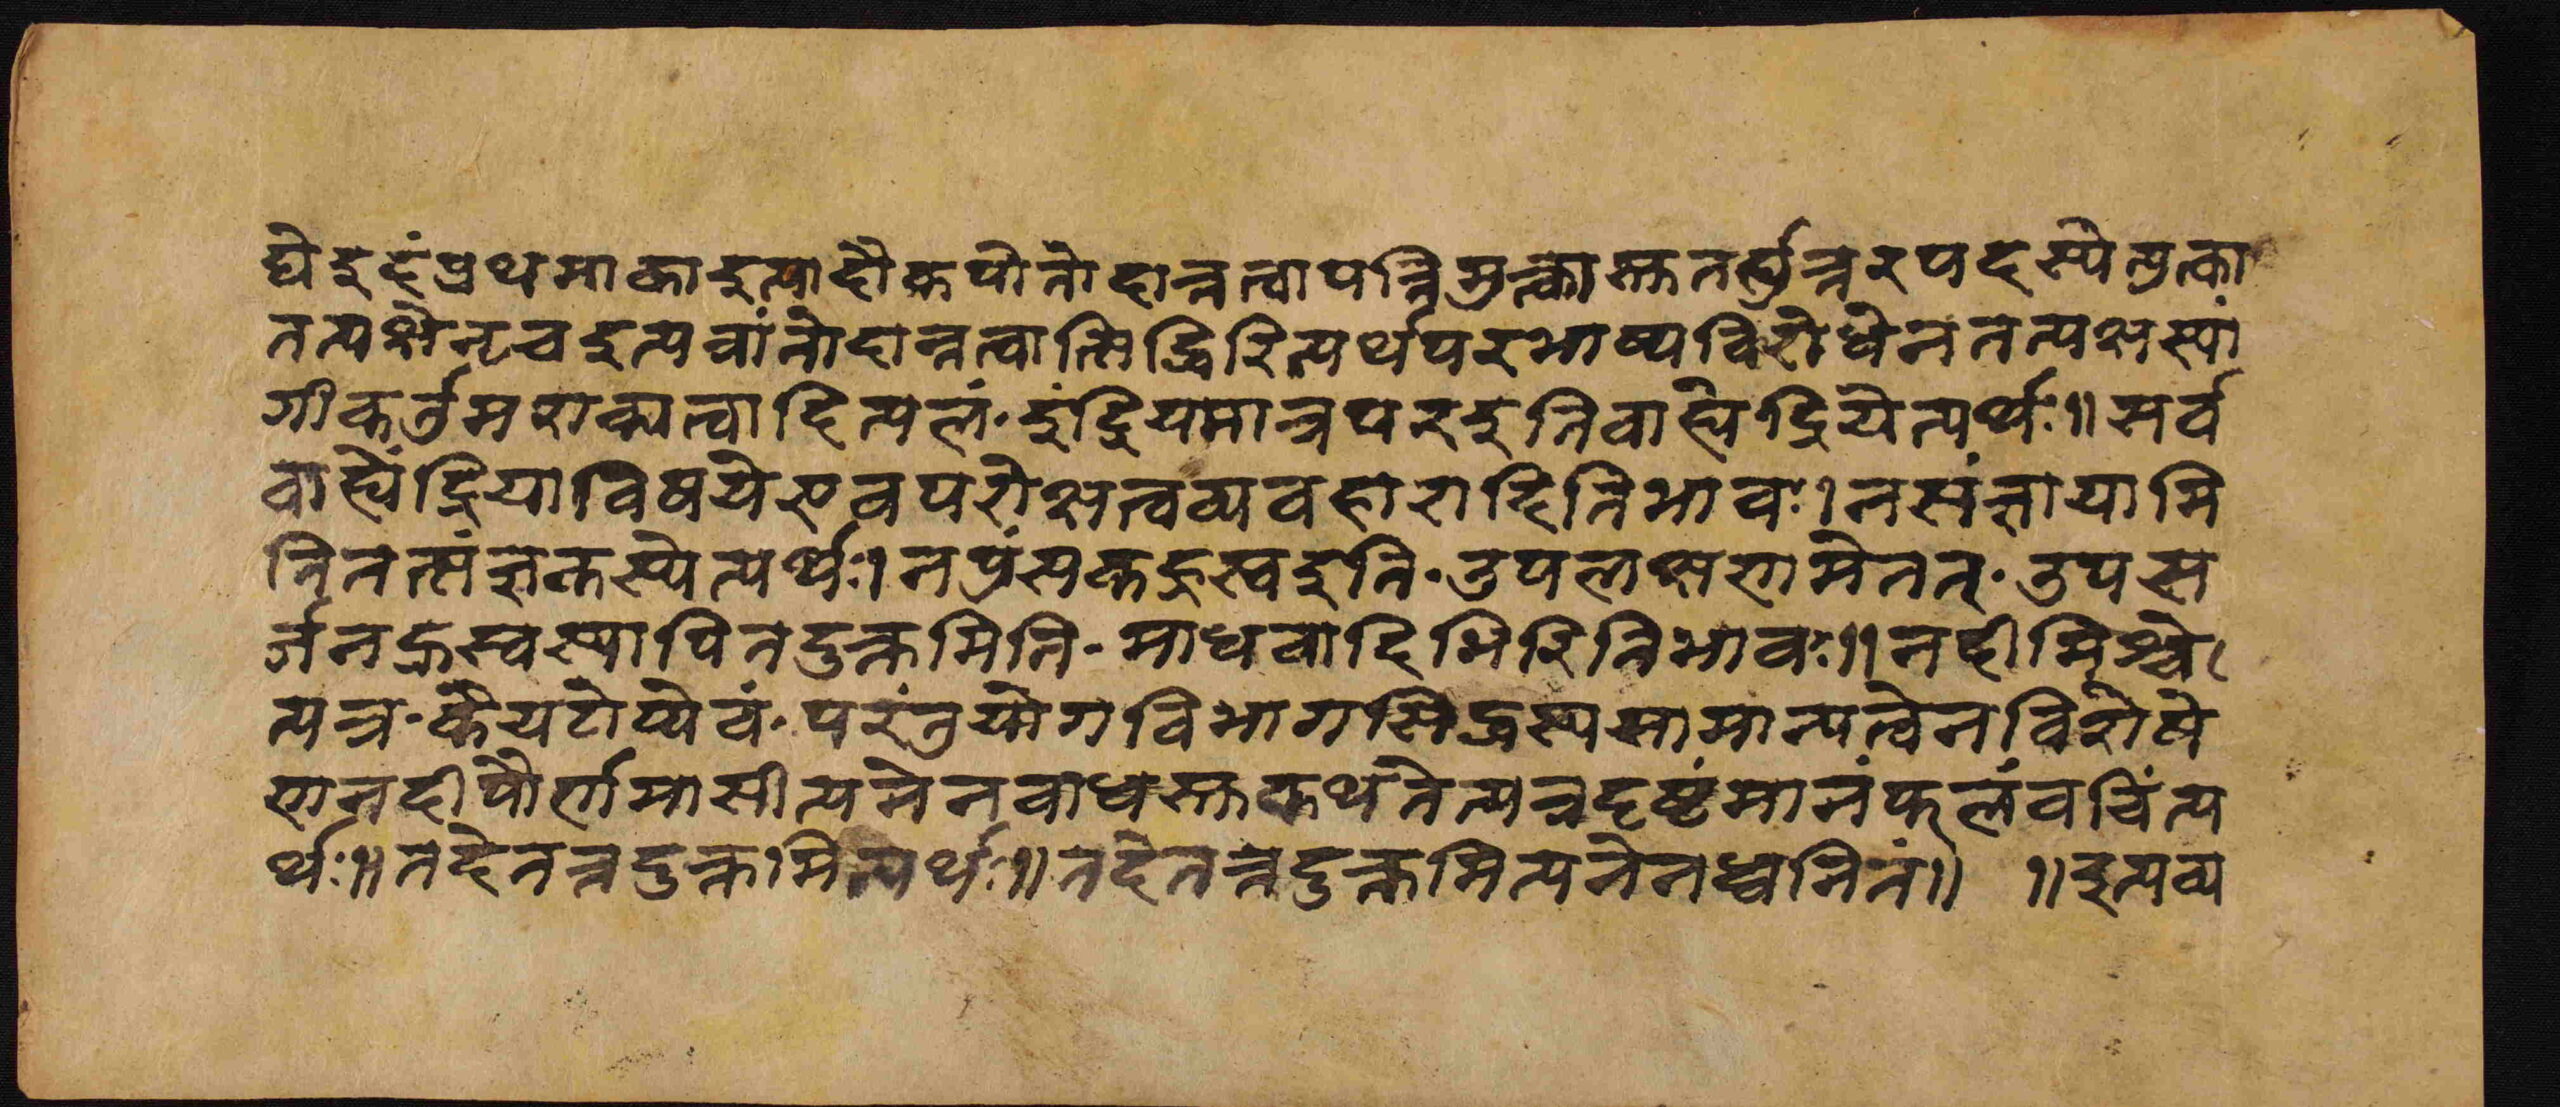 द्येइदंप्रथमाकाइत्यादौकपोतोदात्तत्वापत्तिमुत्काक्ततर्ह्युत्तरपदस्येत्युत्का
तत्पक्षेनृचइत्यत्रांतोदात्तत्वात्सिद्धिरित्यर्थपरभाष्यविरोधेनतत्पक्षस्यां
गीकर्तुमशक्यत्वादित्यलं॰इंद्रियमात्रपरइतिबाह्येद्रियेत्यर्थः॥सर्व
बाह्येंद्रियाविषयेएवपरोक्षत्वव्यवहारादितिभावः।नसंज्ञायामि
तितत्संज्ञकस्येत्यर्थः।नपुंसकह्रस्वइति॰उपलक्षणमेतत्॰उपस
र्जनह्रस्वस्यापितदुक्तमिति॰माधवादिभिरितिभावः॥नदीभिश्चे
त्यत्र॰कैयटोप्येवं॰परंतुयोगविभागसिद्धस्यसामान्यत्वेनविशेषे
णनदीपौर्णमासीत्यनेनबाधक्तकथनेत्यत्रदृष्टंमानंफलंवचिंत्य
र्थः॥तदेतत्तदुक्तमित्यर्थः॥तदेतत्तदुक्तमित्यनेनध्वनितं॥ ॥इत्यव्य